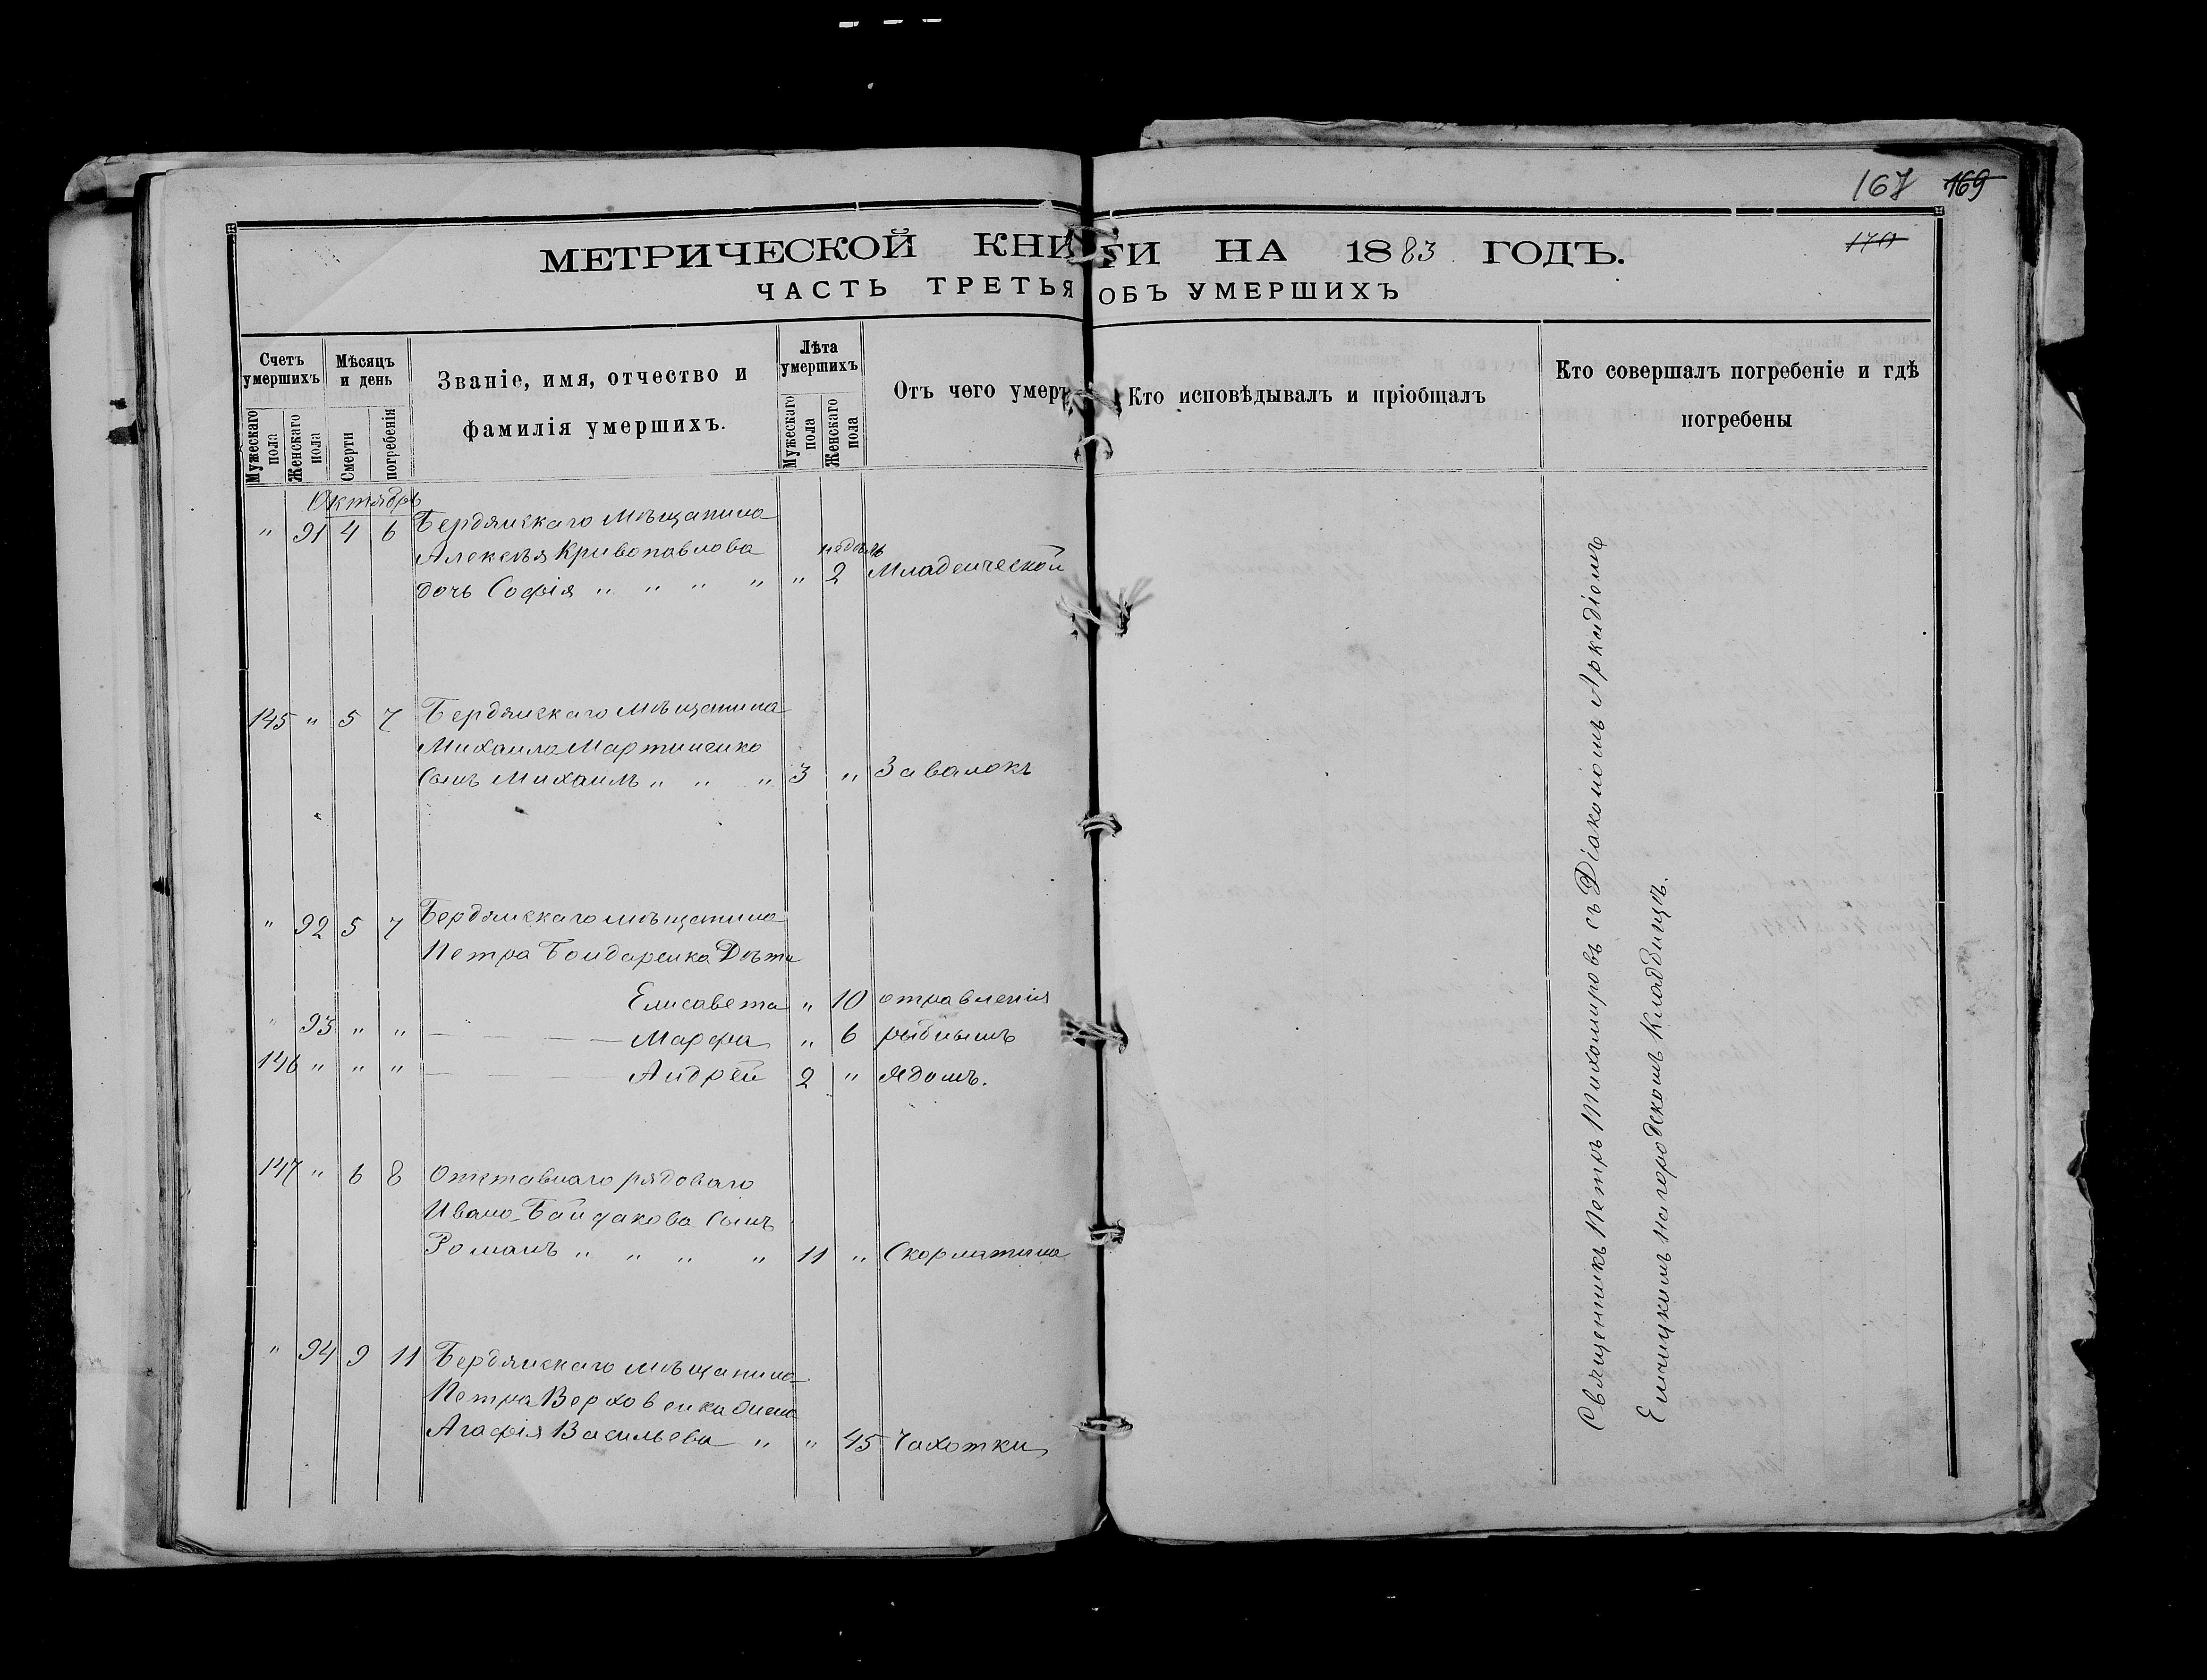 167 169
170
МЕТРИЧЕСКОЙ КНИГИ НА 1883 ГОДЪ.
ЧАСТЬ ТРЕТЬЯ ОБЪ УМЕРШИХЪ
Счетъ умершихъ
Мужескаго пола
Женскаго пола
Мѣсяцъ и день
Смерти
погребенія
Званіе, имя, отчество и
фамилія умершихъ.
Лѣта умершихъ
Мужескаго пола
Женскаго пола
Отъ чего умеръ
Кто исповѣдывалъ и пріобщалъ
Кто совершалъ погребеніе и гдѣ
погребены
Октябрь
" 91 4 6 Бердянскаго мѣщанина
Алексѣя Кривопавлова недѣль
дочь Софія " " " " " 2 Младенческой
145 " 5 7 Бердянскаго мѣщанина
Михаила Мартиненко
сынъ Михаилъ " " " 3 " Завалокъ
" 92 5 7 Бердянскаго мѣщанина
Петра Бондаренка Дѣти
Елисавета " 10 отравленія
" 93 " " — — — — Марфа " 6 рыбнымъ
146 " " " — — — — Андрей 2 " Ядомъ.
147 " 6 8 Отставнаго рядоваго
Ивана Байдакова сынъ
Романъ " " " " 11 " Скорлатина
" 94 9 11 Бердянскаго мѣщанина
Петра Верховенка жена
Агафія Васильева " " 45 Чахотки
Священникъ Петръ Тихомировъ съ Діакономъ Аркадіомъ
Еничицкимъ на городскомъ Кладбищѣ.